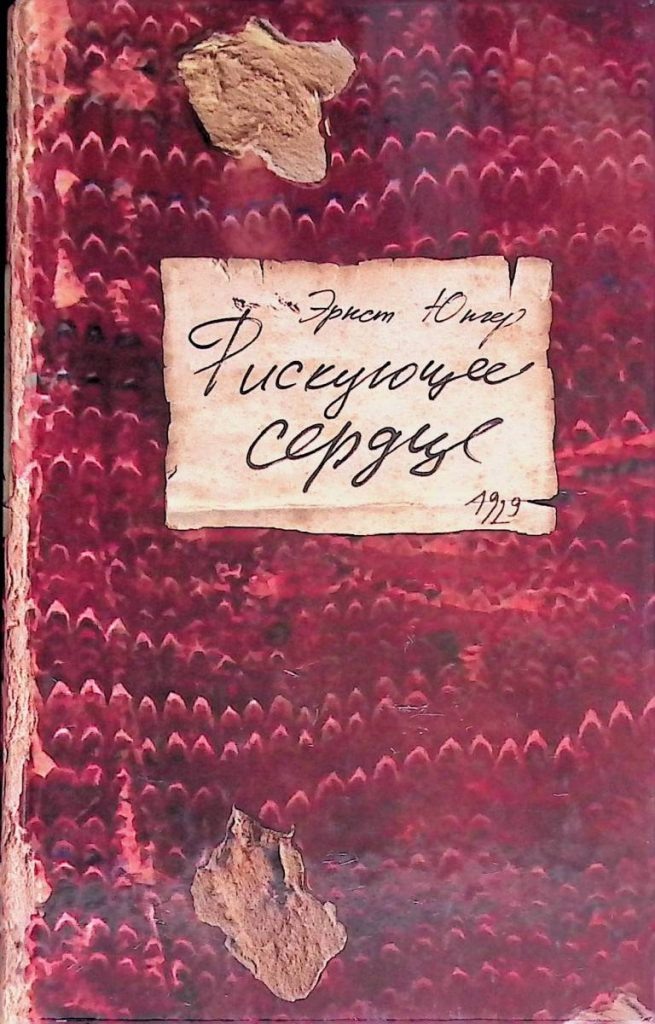 Эрнст Юнгер
Рискующее
сердце
1929